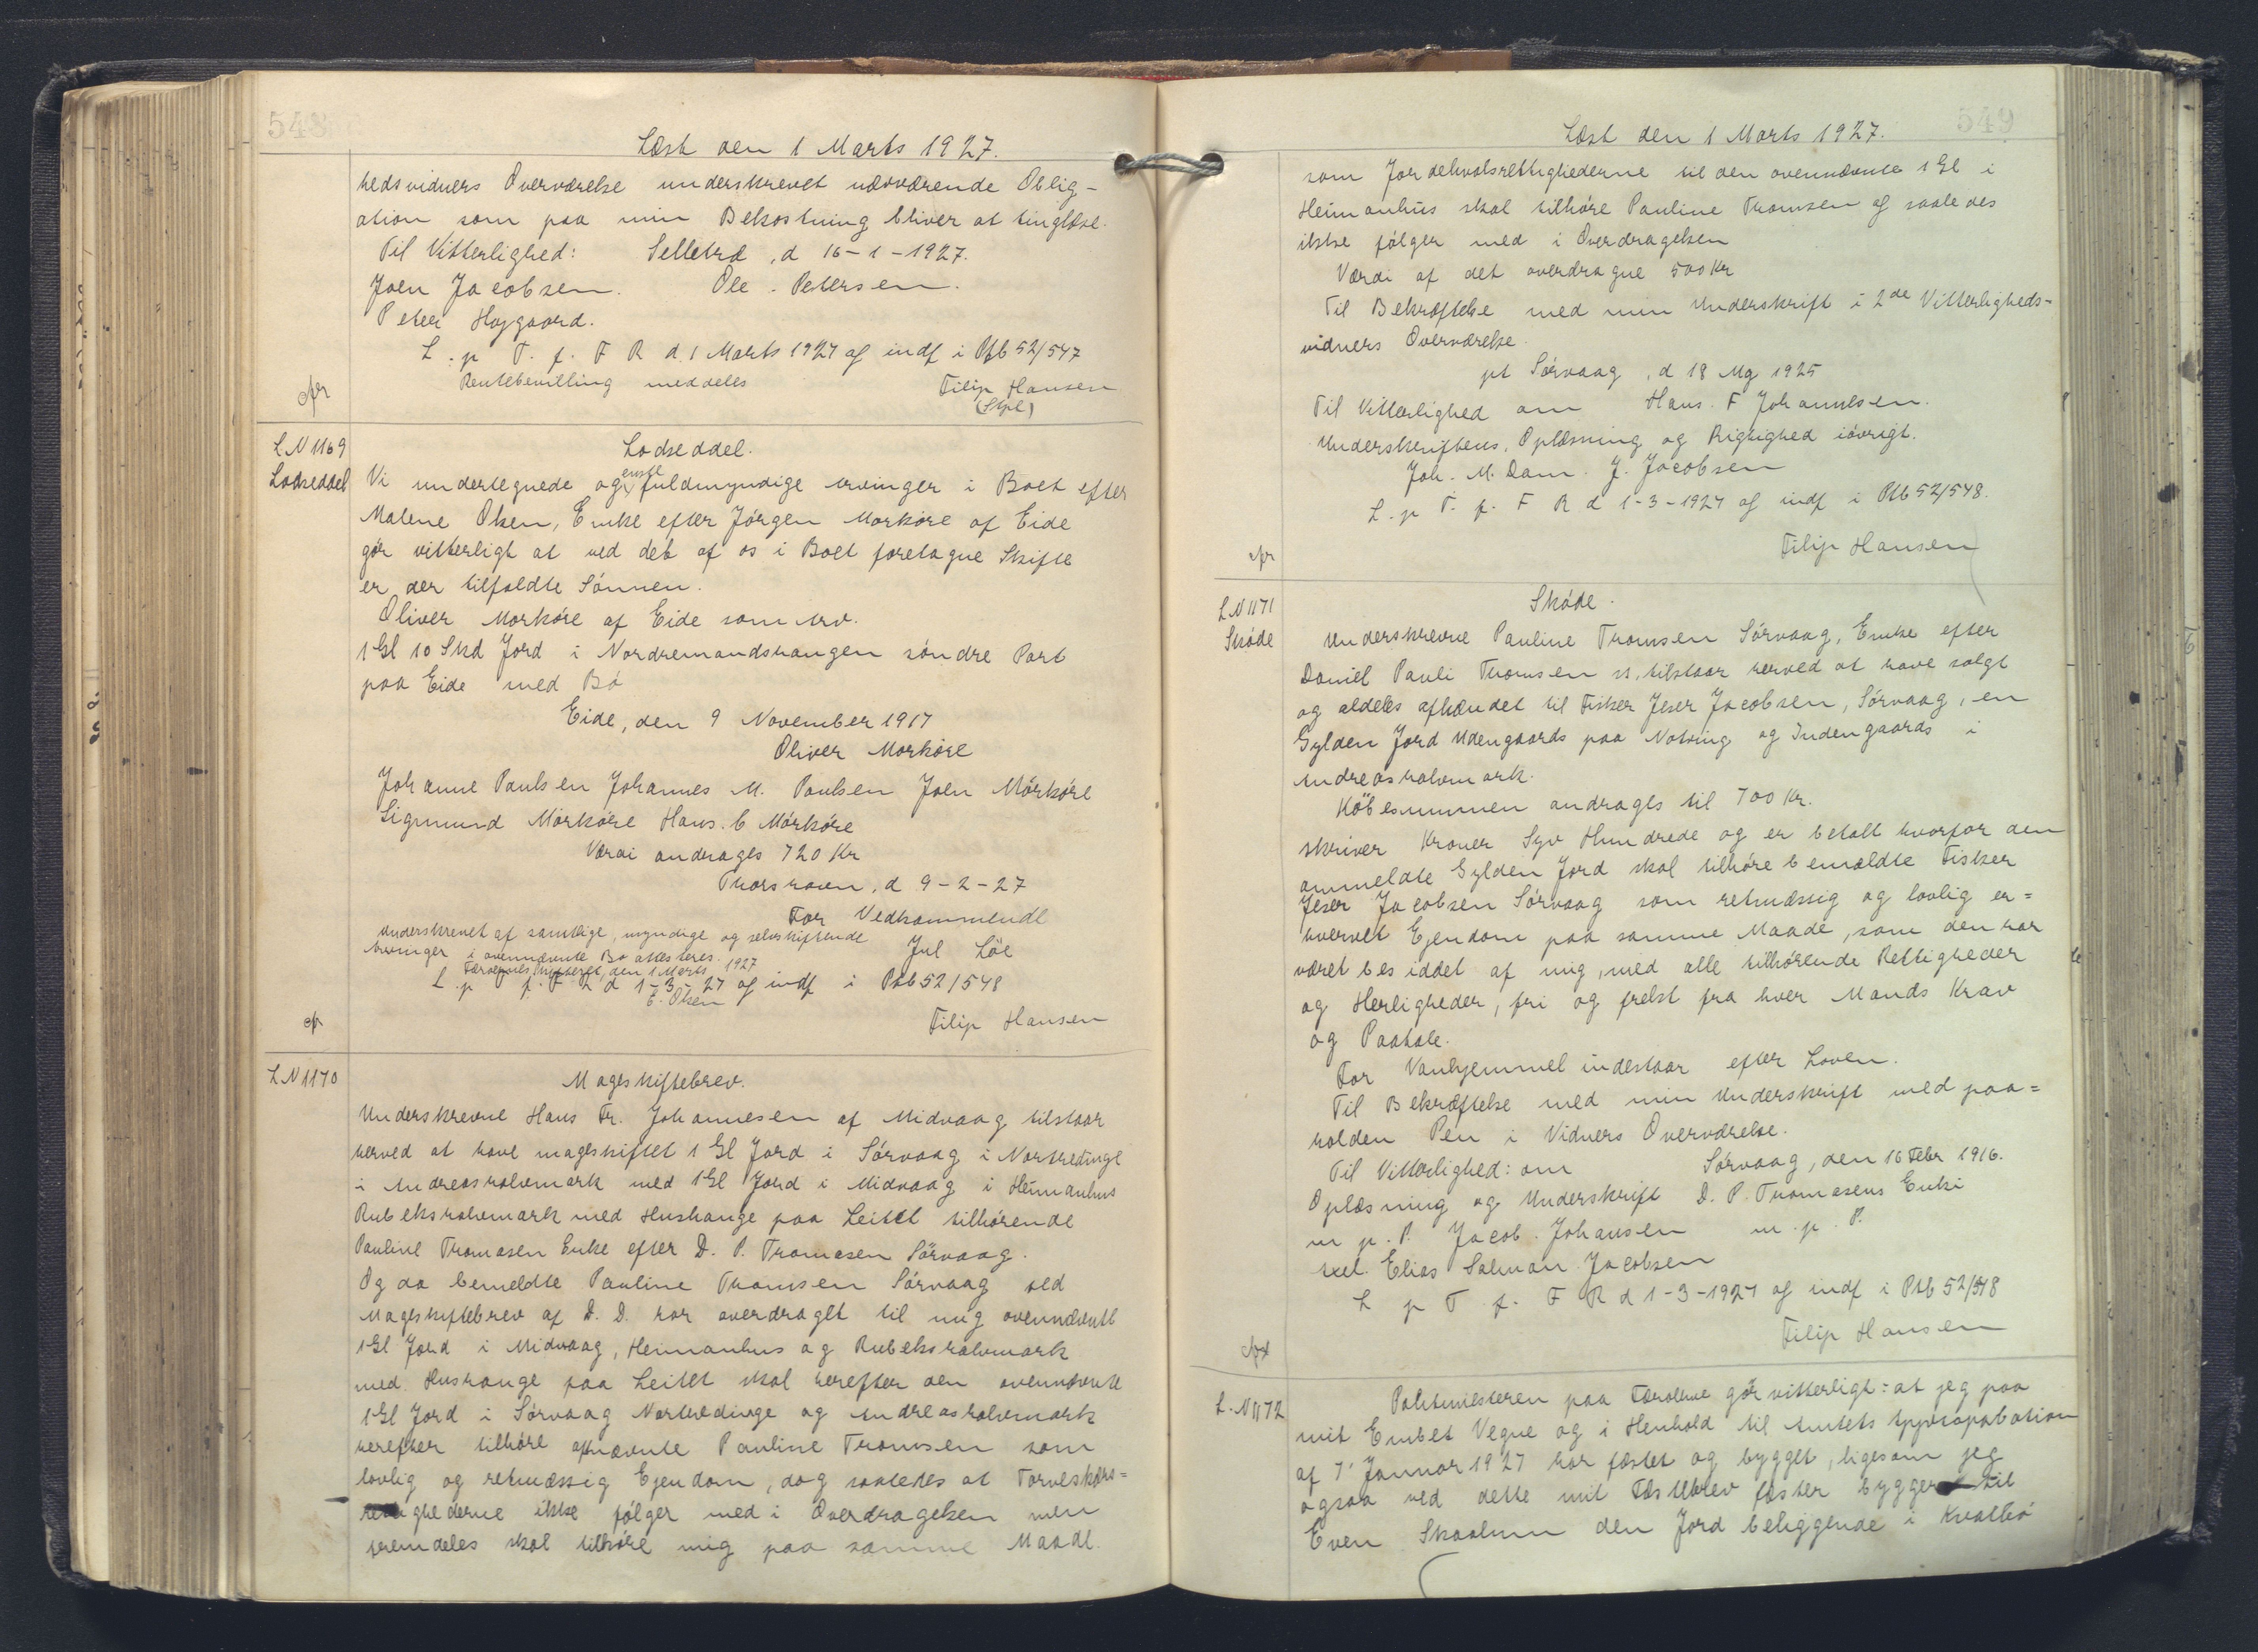 548
Læst den 1 Marts 1927.
hedsvidners Overværelse underskrevet nærværende Oblig-
ation som paa min Bekostning bliver at tinglæse.
Til Vitterlighed: Selletræ, d 16-1-1927.
Joen Jacobsen. Ole. Petersen.
Peter Hojgaard.
L. p T. f. F R d. 1 Marts 1927 og indf i Ptb 52/547
Rentebevilling meddeles Filip Hansen
(Stpl)
L N 1169 Lodseddel.
Lodseddel Vi undertegnede og eneste fuldmyndige arvinger i Boet efter
Malene Olsen, Enke efter Jørgen Morkøre af Eide
gør vitterligt at ved det af os i Boet foretagne Skifte
er der tilfaldte Sønnen.
Oliver Morkøre af Eide som arv.
1 Gl 10 Skd Jord i Nordremandshangen søndre Part
paa Eide med Bø
Eide, den 9 November 1917
Oliver Morkøre
Johanne Paulsen Johannes M. Poulsen Joen Mörköre
Sigmund Mörköre Hans. C Mörköre
Værdi andrages 720 Kr
Thorshavn, d 9-2-27
For Vedkommende
Underskrevet af samtlige, myndige og selvskiftende
Jul Løe
arvinger i ovennævnte Bo attesteres.
Færøernes Skifteret, den 1 Marts 1927
L. p f. F R d 1-3-27 og indf i Ptb 52/548
E. Olsen
Filip Hansen
L N 1170 Mageskiftebrev.
Underskrevne Hans Fr. Johannesen af Midvaag tilstaar
herved at have mageskiftet 1 Gl Jord i Sørvaag i Nortredinge
i Andreashalvmark med 1 Gl Jord i Midvaag i Heimanhus
Rubekshalvmark med Hushange paa Leitet tilhørende
Pauline Thomasen Enke efter D. P. Thomasen Sørvaag.
Og da bemeldte Pauline Thomsen Sørvaag ved
Mageskiftebrev af D. D. har overdraget til mig ovennævnte
1 Gl Jord i Midvaag, Heimanhus og Rubekshalvmark
med Hushange paa Leitet skal herefter den ovennævnte
1 Gl Jord i Sørvaag Nortredinge og Andreashalvmark
herefter tilhøre afnævnte Pauline Thomsen som
lovlig og retmæssig Ejendom, dog saaledes at Torveskærs=
rettighederne ikke følger med i Overdragelsen men
fremdeles skal tilhøre mig paa samme Maade.
549
Læst den 1 Marts 1927.
som Jordehvalsrettighederne til den ovennævnte 1 Gl i
Heimanhus skal tilhøre Pauline Thomsen og saaledes
ikke følger med i Overdragelsen
Værdi af det overdragne 500 Kr
Til Bekræftelse med min Underskrift i 2de Vitterligheds=
vidners Overværelse.
pt Sørvaag, d 18 Mg 1925
Til Vitterlighed om Hans. F Johannesen.
Underskriftens, Oplæsning og Rigtighed iøvrigt.
Joh. M. Dam. J. Jacobsen
L. p T. f. F R d 1-3-1927 og indf i Ptb 52/548.
Filip Hansen
L N 1171 Skøde.
Skøde Underskrevne Pauline Thomsen Sørvaag, Enke efter
Daniel Pauli Thomsen ss, tilstaar herved at have solgt
og aldeles afhændet til Fisker Jeser Jacobsen, Sørvaag, en
Gylden Jord Udengaards paa Notring og Indengaards i
Andreashalvmark.
Købesummen andrages til 700 Kr.
skriver Kroner Syv Hundrede og er betalt hvorfor den
ommeldte Gylden Jord skal tilhøre bemeldte Fisker
Jeser Jacobsen Sørvaag som retmæssig og lovlig er=
hvervet Ejendom paa samme Maade, som den har
været besiddet af mig, med alle tilhørende Rettigheder
og Herligheder, fri og frelst fra hver Mands Krav
og Paatale.
For Vanhjemmel indestaar efter Loven.
Til Bekræftelse med min Underskrift med paa=
holden Pen i Vidners Overværelse.
Til Vitterlighed: om Sørvaag, den 16 Febr 1916.
Oplæsning og Underskrift D. P. Thomasens Enke
m p. P. Jacob. Johansen m. p. P.
Elias Salmon Jacobsen
L p T f. F R d 1-3-1927 og indf i Ptb 52/548
Filip Hansen
L. N 1172 Politimesteren paa Færøerne gör vitterligt: at jeg paa
mit Embet Vegne og i Henhold til Amtets Approbation
af 7' Januar 1927 har fæstet og bygget, ligesom jeg
ogsaa ved dette mit Fæstebrev fæster bygger til
Even Skaalum den Jord beliggende i Kvalbø